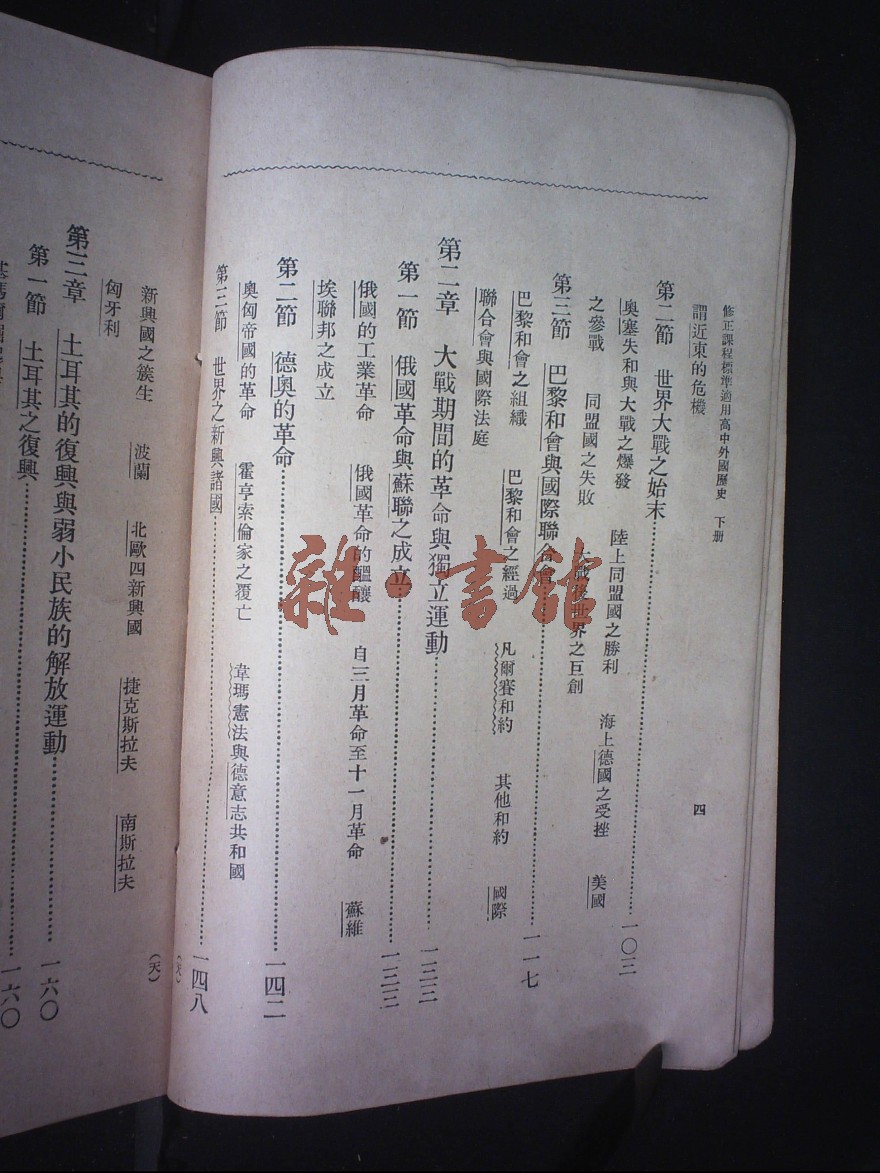 修正課程標準適用高中外國歷史　下册
四
謂近東的危機
第二節　世界大戰之始末……一〇三
奧塞失和與大戰之爆發　陸上同盟國之勝利　海上德國之受挫　美國
之參戰　同盟國之失敗　大戰後世界之巨創
第三節　巴黎和會與國際聯合會……一一七
巴黎和會之組織　巴黎和會之經過　凡爾賽和約　其他和約　國際
聯合會與國際法庭
第二章　大戰期間的革命與獨立運動……一三三
第一節　俄國革命與蘇聯之成立……一三三
俄國的工業革命　俄國革命的醞釀　自三月革命至十一月革命　蘇維
埃聯邦之成立
第二節　德奧的革命……一四二
奧匈帝國的革命　霍亨索倫家之覆亡　韋瑪憲法與德意志共和國
第三節　世界之新興諸國……一四八
新興國之簇生　波蘭　北歐四新興國　捷克斯拉夫　南斯拉夫
匈牙利
第三章　土耳其的復興與弱小民族的解放運動……一六〇
第一節　土耳其之復興……一六〇
雜·書館